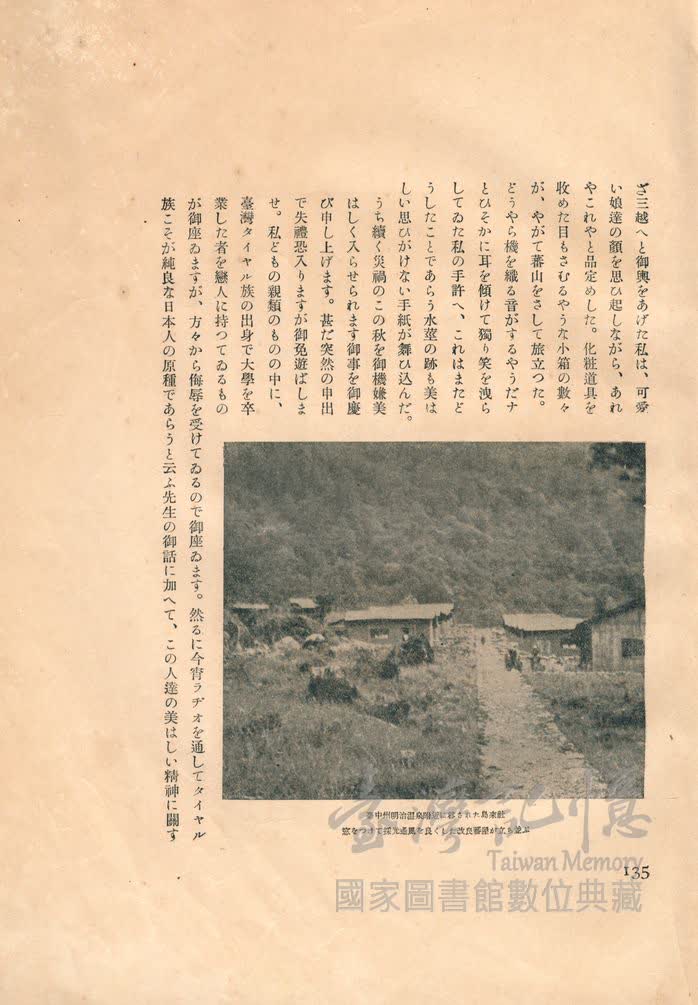 ざ三越へと御輿をあげた私は、可愛
い娘達の顔を思ひ起しながら、あれ
やこれやと品定めした。化粧道具を
收めた目もさむるやうな小箱の數々
が、やがて蕃山をさして旅立つた。
どうやら機を織る音がするやうだナ
とひそかに耳を傾けて獨り笑を洩ら
してゐた私の手許へ、これはまたど
うしたことであらう水莖の跡も美は
しい思ひがけない手紙が舞ひ込んだ。
うち續く災禍のこの秋を御機嫌美
はしく入らせられます御事を御慶
び申し上げます。甚だ突然の申出
で失禮恐入りますが御免遊ばしま
せ。私どもの親類のものの中に、
臺灣タイヤル族の出身で大學を卒
業した者を戀人に持つてゐるもの
が御座ゐますが、方々から侮辱を受けてゐるので御座ゐます。然るに今宵ラヂオを通してタイヤル
族こそが純良な日本人の原種であらうと云ふ先生の御話に加へて、この人達の美はしい精神に關す
臺中州明治溫泉附近に移された烏來社
窓をつけて採光通風を良くした改良蕃屋が立ち並ぶ
135
臺灣記憶
Taiwan Memory
國家圖書館數位典藏